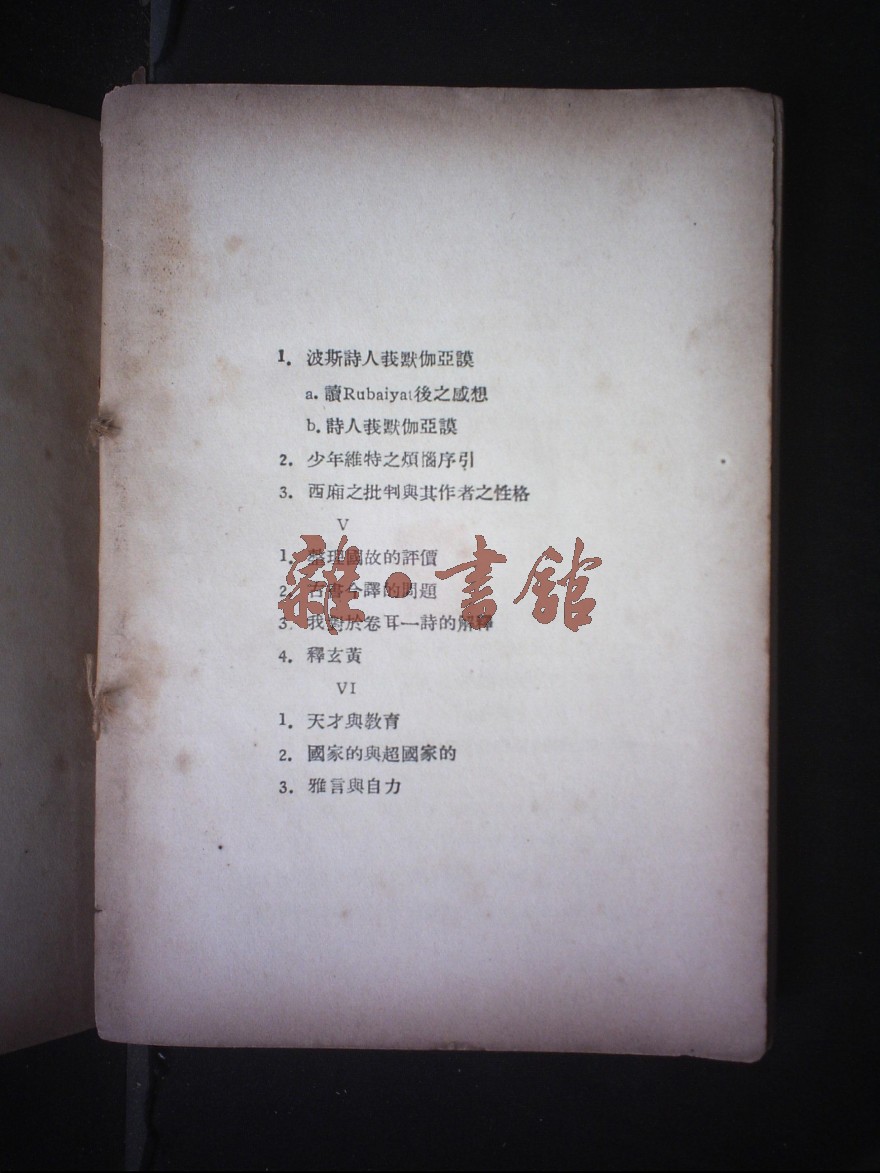 1. 波斯詩人莪默伽亞謨
a. 讀Rubaiyat後之感想
b. 詩人莪默伽亞謨
2. 少年維特之煩惱序引
3. 西廂之批判與其作者之性格
V
1. 整理國故的評價
2. 古書今譯的問題
3. 我對於卷耳一詩的解釋
4. 釋玄黃
VI
1. 天才與教育
2. 國家的與超國家的
3. 雅言與自力
雜·書館